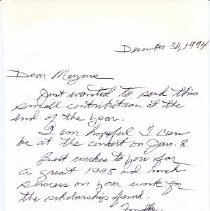 December 30, 1994
Dear Mayme
Just wanted to send this
small contribution at the
end of the year.
I am hopeful I can
be at the concert on Jan. 8
Best wishes to you for
a great 1995 and much
success on your work for
the scholarship fund.